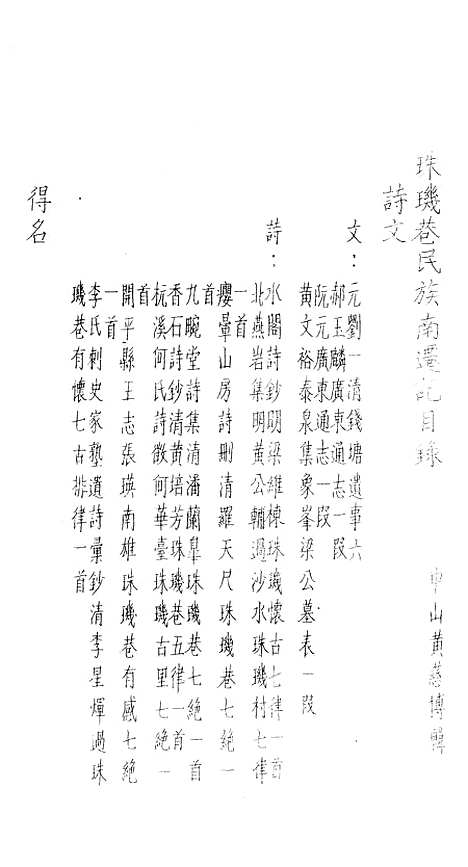 珠璣巷民族南遷記目錄
中山黃慈博輯
詩文
文：
元劉一清錢塘遺事六
郝玉麟廣東通志一段
阮元廣東通志一段
黃文裕泰泉集象峯梁公墓表一段
詩：
水閣詩鈔明梁維棟珠璣懷古七律一首
北燕岩集明黃公輔過沙水珠璣村七律
一首
癭暈山房詩刪清羅天尺珠璣巷七絕一
首
九畹堂詩集清潘蘭皐珠璣巷七絕一首
香石詩鈔清黃培芳珠璣巷五律一首
杬溪何氏詩徵何華臺珠璣古里七絕一
首
開平縣王志張瑛南雄珠璣巷有感七絕
一首
李氏刺史家塾遺詩彙鈔清李星煇過珠
璣巷有懷七古排律一首
得名